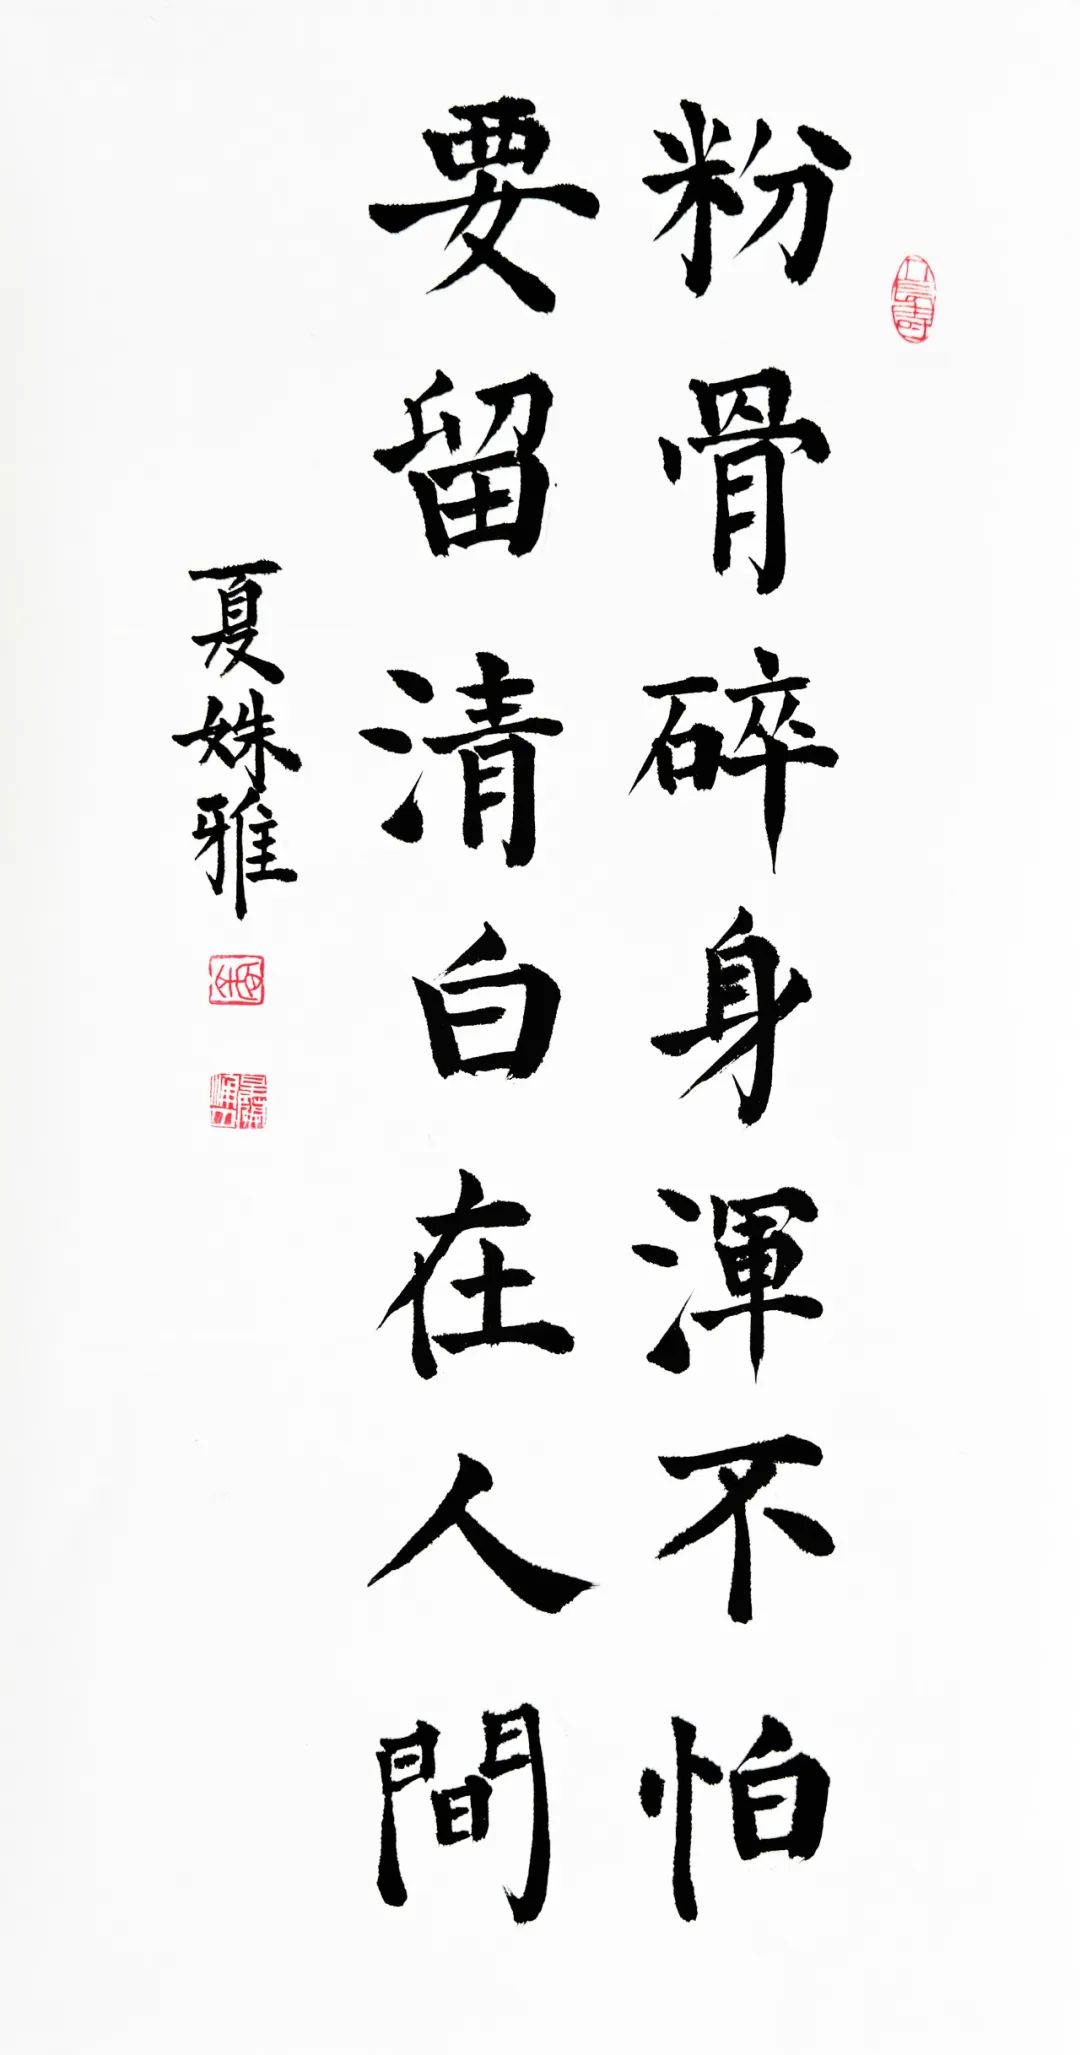 粉骨碎身渾不怕
要留清白在人間
夏姝雅